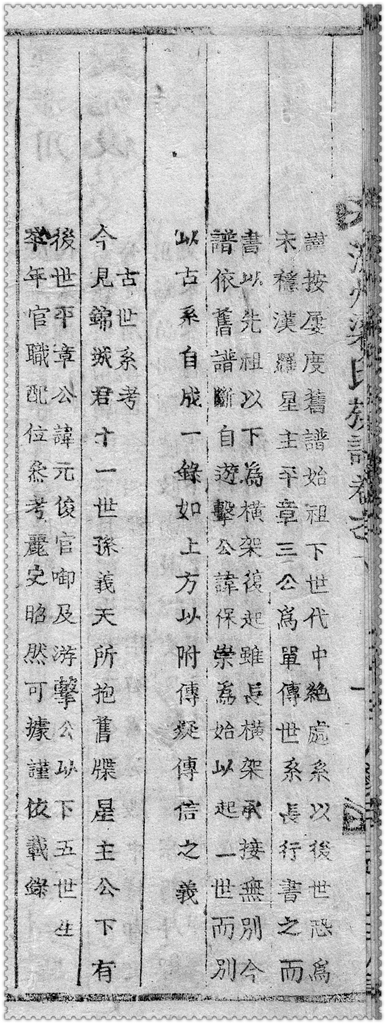 濟州梁氏族譜卷之
謹按屢度舊譜始祖下世代中絶處系以後世恐爲
未穩漢羅星主平章三公爲單傳世系長行書之而
書以先祖以下為橫架復起雖長橫架承接無別今
譜依舊譜斷自遊擊公諱保崇為始以起一世而別
以古系自成一錄如上方以附傳疑傳信之義
古世系考
今見錦城君十一世孫義天所抱舊牒星主公下有
後世平章公諱元俊官啣及游擊公以下五世生
卒年官職配位叅考麗史昭然可據謹依載錄